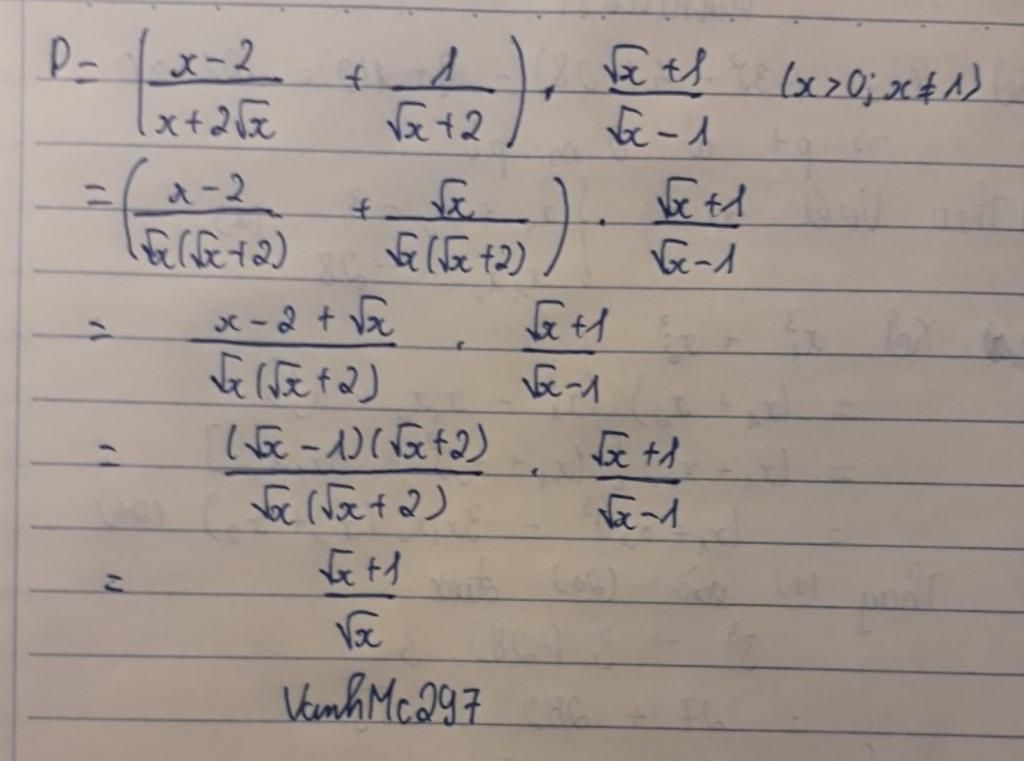 P = ( (x-2)/(x+2√x) + 1/(√x+2) ) . (√x+1)/(√x-1) (x>0; x≠1)
= ( (x-2)/(√x(√x+2)) + √x/(√x(√x+2)) ) . (√x+1)/(√x-1)
= (x-2+√x)/(√x(√x+2)) . (√x+1)/(√x-1)
= ((√x-1)(√x+2))/(√x(√x+2)) . (√x+1)/(√x-1)
= (√x+1)/√x
VanhMc297